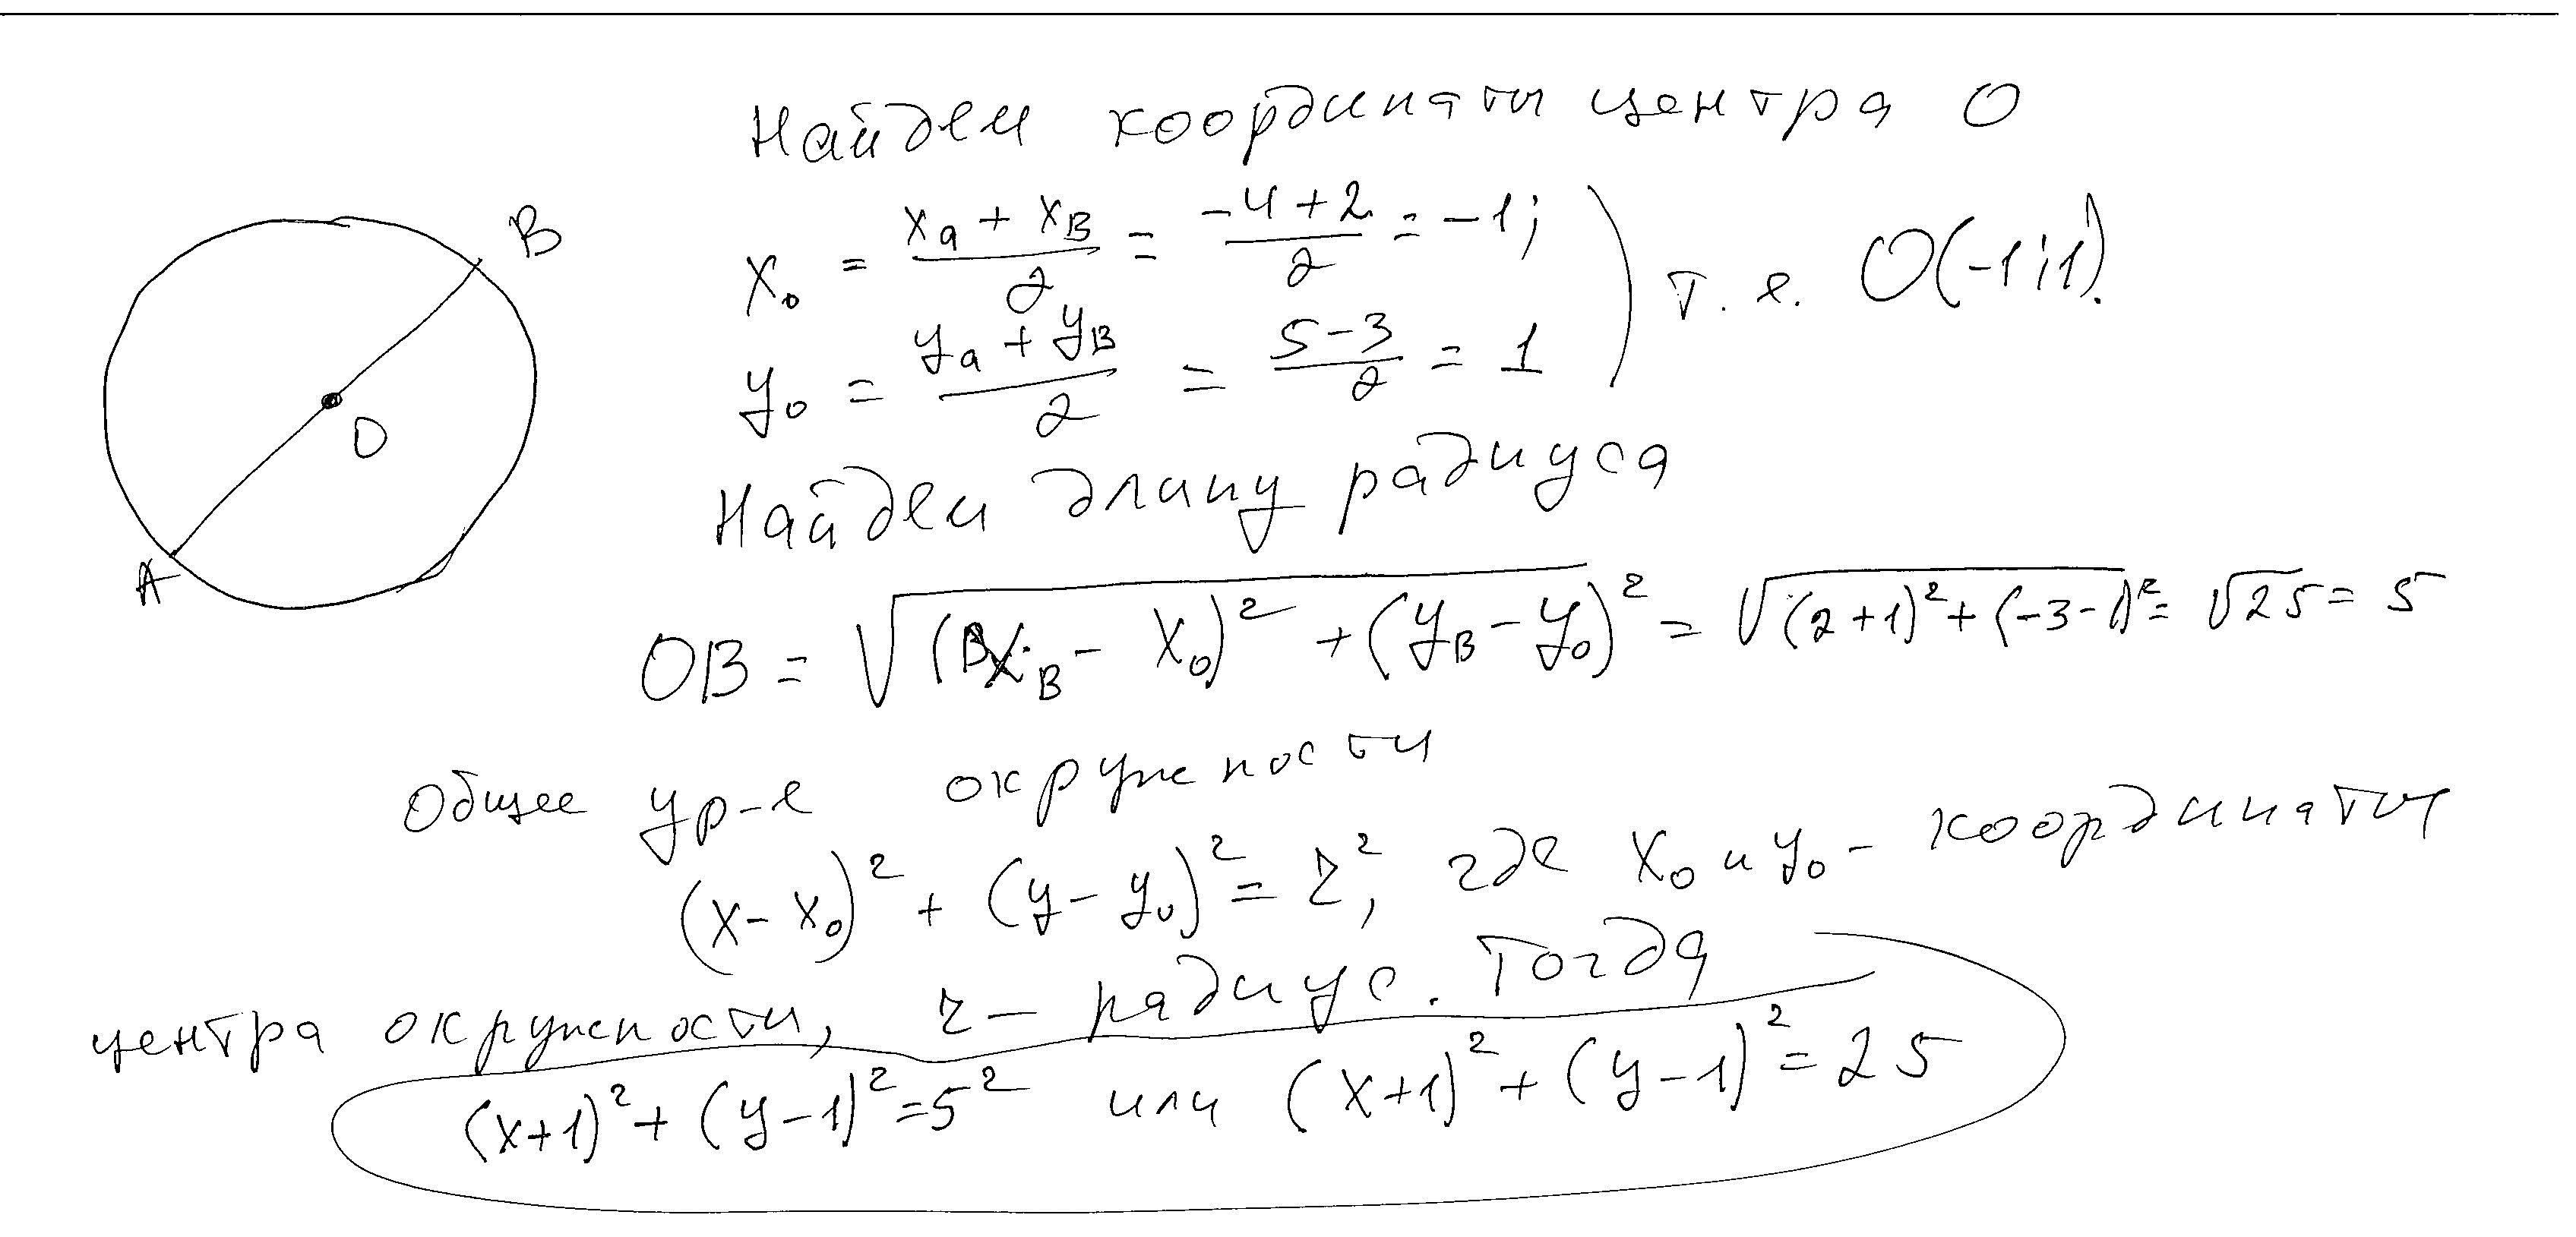 Найдем координаты центра O
B
x₀ = (xₐ + x_B)/2 = (-4+2)/2 = -1;
т.е. O(-1;1).
y₀ = (yₐ + y_B)/2 = (5-3)/2 = 1
O
Найдем длину радиуса
A
OB = √((x_B - x₀)² + (y_B - y₀)²) = √((2+1)² + (-3-1)²) = √25 = 5
Общее ур-е окружности
(x - x₀)² + (y - y₀)² = r², где x₀ и y₀ - координаты
центра окружности, r - радиус. Тогда
(x+1)² + (y-1)² = 5² или (x+1)² + (y-1)² = 25